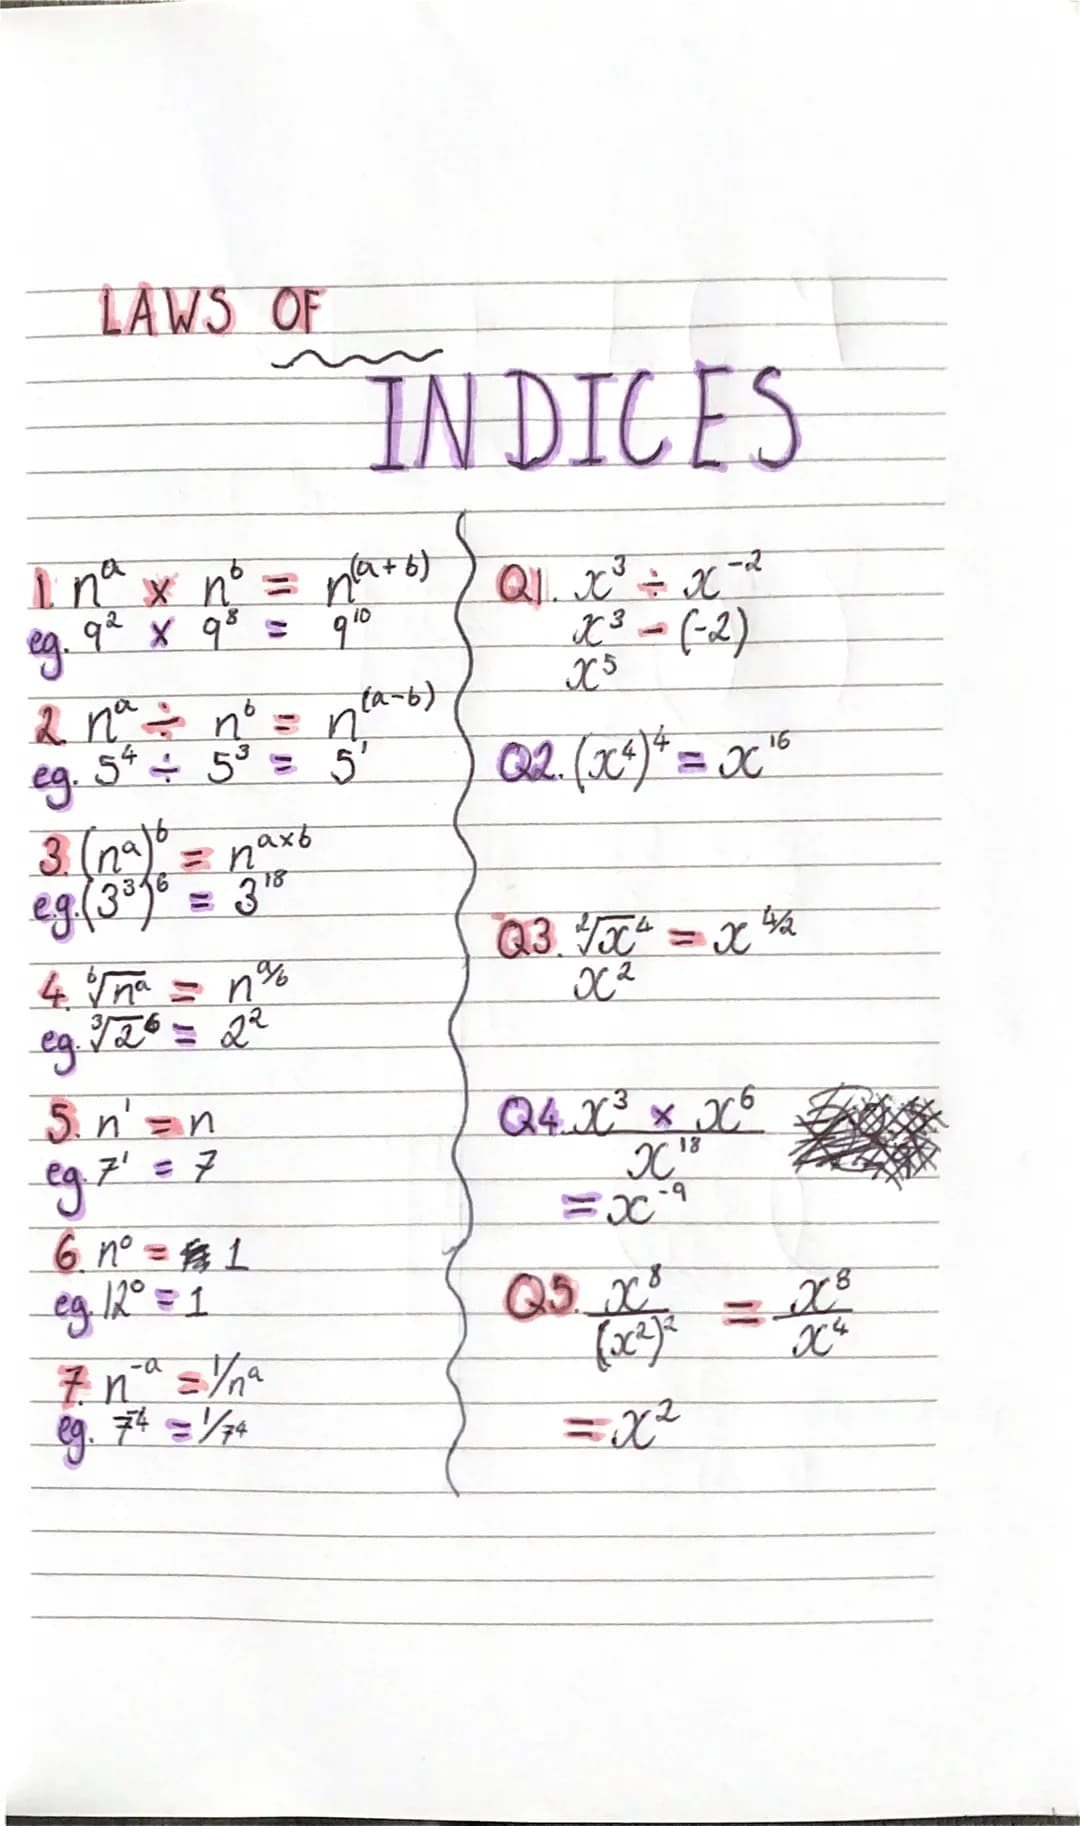 LAWS OF
INDICES
1. nᵃ × nᵇ = n⁽ᵃ⁺ᵇ⁾
eg. 9² × 9⁸ = 9¹⁰
2. nᵃ ÷ nᵇ = n⁽ᵃ⁻ᵇ⁾
eg. 5⁴ ÷ 5³ = 5¹
3. (nᵃ)ᵇ = nᵃˣᵇ
e.g. (3³)⁶ = 3¹⁸
4. ᵇ√nᵃ = nᵃ/ᵇ
eg. ³√2⁶ = 2²
5. n¹ = n
eg. 7¹ = 7
6. n⁰ = 1
eg. 12⁰ = 1
7. n⁻ᵃ = 1/nᵃ
eg. 7⁻⁴ = 1/7⁴
Q1. x³ ÷ x⁻²
x³ - (-2)
x⁵
Q2. (x⁴)⁴ = x¹⁶
Q3. ²√x⁴ = x⁴/²
x²
Q4. x³ × x⁶
x¹⁸
= x⁻⁹
Q5. x⁸ = x⁸
(x²)² x⁴
= x²